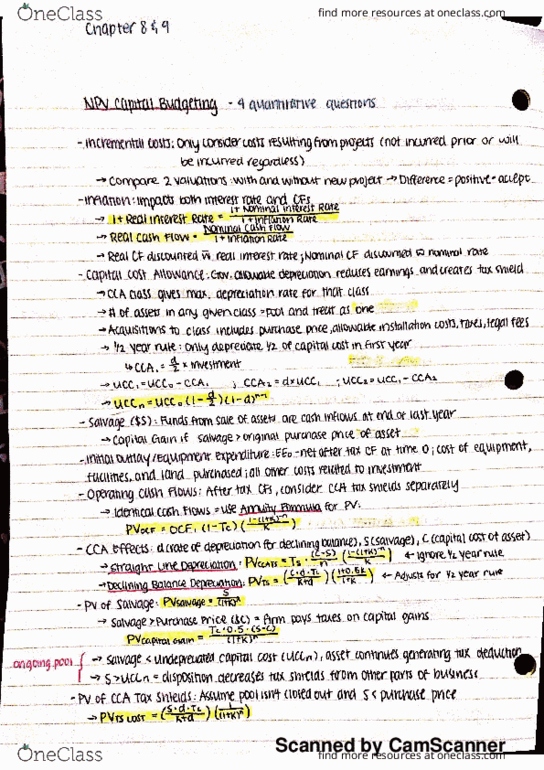 OneClass
find more resources at oneclass.com
Chapter 8 & 9
NPV Capital Budgeting - 4 quantitative questions
- Incremental costs: Only consider costs resulting from projects (not incurred prior or will
be incurred regardless)
→ Compare 2 valuations: with and without new project → Difference = positive = accept
- Inflation: Impacts both interest rate and CFs
→ 1 + Real Interest Rate = 1 + Nominal Interest Rate / 1 + Inflation Rate
→ Real Cash Flow = Nominal Cash Flow / 1 + Inflation Rate
→ Real CF discounted w real interest rate; Nominal CF discounted w nominal rate
- Capital Cost Allowance: Gov. allowable depreciation reduces earnings and creates tax shield
→ CCA class gives max. depreciation rate for that class
→ # of assets in any given class = pool and treat as one
→ Acquisitions to class includes purchase price, allowable installation costs, taxes, legal fees
→ 1/2 year rule: Only depreciate 1/2 of capital cost in first year
↳ CCA₁ = d/2 × Investment
→ UCC₁ = UCC₀ - CCA₁ ; CCA₂ = d × UCC₁ ; UCC₂ = UCC₁ - CCA₂
→ UCCn = UCC₀ (1 - d/2)(1-d)ⁿ⁻¹
- Salvage ($S): Funds from sale of assets are cash inflows at end of last year
→ Capital Gain if salvage > original purchase price of asset
- Initial outlay/equipment expenditure: EE₀ - net after tax CF at time 0; cost of equipment,
facilities, and land purchased; all other costs related to investment
- Operating cash flows: After tax CFs, consider CCA tax shields separately
→ Identical cash flows = use Annuity Formula for PV:
PVOCF = OCF₁ (1-Tc) (1-(1+K)⁻ⁿ / K)
- CCA Effects: d(rate of depreciation for declining balance), S(salvage), C (capital cost of asset)
→ Straight Line Depreciation: PVCCATS = Tc · (C-S)/n (1-(1+K)⁻ⁿ / K) ← Ignore 1/2 year rule
→ Declining Balance Depreciation: PVTS = (C·d·Tc / K+d) (1+0.5K / 1+K) ← Adjusts for 1/2 year rule
- PV of Salvage: PVsalvage = S / (1+K)ⁿ
→ Salvage > Purchase Price ($C) = Firm pays taxes on capital gains
PVcapital Gain = Tc · 0.5 · (S-C) / (1+K)ⁿ
ongoing pool
→ Salvage < undepreciated capital cost (UCCn), asset continues generating tax deduction
→ S > UCCn = disposition decreases tax shields from other parts of business
- PV of CCA Tax Shields: Assume pool isn't closed out and S < purchase price
→ PVTS LOST = (S·d·Tc / K+d) (1 / (1+K)ⁿ)
Scanned by CamScanner
OneClass
find more resources at oneclass.com